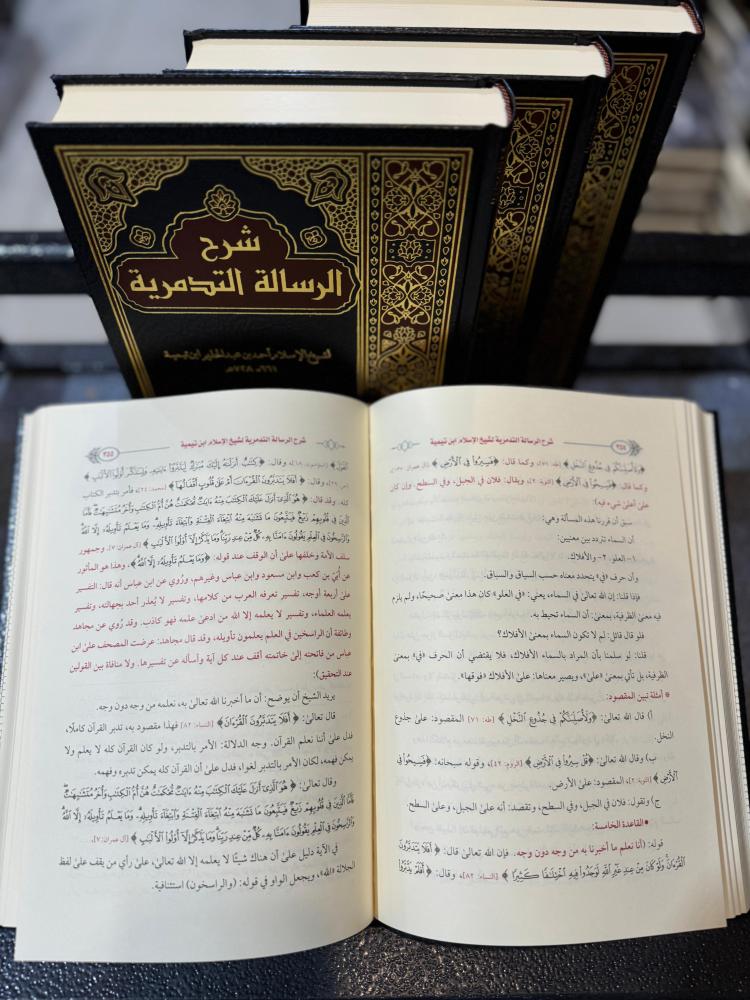 شرح
الرسالة التدمرية
لشيخ الإسلام أحمد بن عبد الحليم ابن تيمية
٦٦١ - ٧٢٨هـ
شرح الرسالة التدمرية لشيخ الإسلام ابن تيمية
٢٥٤
﴿وَلَأُصَلِّبَنَّكُمْ فِي جُذُوعِ النَّخْلِ﴾ [طه: ٧١] وكما قال: ﴿فَسِيرُوا فِي الْأَرْضِ﴾ [آل عمران: ١٣٧]
وكما قال: ﴿فَسِيحُوا فِي الْأَرْضِ﴾ [التوبة: ٢]، ويقال: فلان في الجبل، وفي السطح، وإن كان
على أعلى شيء فيه):
سبق أن قررنا هذه المسألة وهي:
أن السماء تتردد بين معنيين:
١- العلو. ٢- والأفلاك.
وأن حرف «في» يتحدد معناه حسب السياق والسباق.
فإذا قلنا: إن الله في السماء، يعني: «في العلو» كان هذا معنىً صحيحًا، ولم يلزم
فيه معنى الظرفية، بمعنىٰ: أن السماء تحيط به.
فلو قال قائل: لم لا تكون السماء بمعنىٰ الأفلاك؟
قلنا: لو سلمنا بأن المراد بالسماء الأفلاك، فلا يقتضي أن الحرف «في» بمعنىٰ
الظرفية، بل تأتي بمعنىٰ «علىٰ»، ويصير معناها: علىٰ الأفلاك «فوقها».
* أمثلة تبين المقصود:
أ) قال الله تعالىٰ: ﴿وَلَأُصَلِّبَنَّكُمْ فِي جُذُوعِ النَّخْلِ﴾ [طه: ٧١] المقصود: علىٰ جذوع
النخل.
ب) وقال الله تعالىٰ: ﴿قُلْ سِيرُوا فِي الْأَرْضِ﴾ [الروم: ٤٢]، وقوله سبحانه: ﴿فَسِيحُوا فِي
الْأَرْضِ﴾ [التوبة: ٢]، المقصود: علىٰ الأرض.
ج) وتقول: فلان في الجبل، وفي السطح، وتقصد: أنه علىٰ الجبل، وعلىٰ السطح.
• القاعدة الخامسة:
قوله: (أنا نعلم ما أخبرنا به من وجه دون وجه. فإن الله تعالىٰ قال: ﴿أَفَلَا يَتَدَبَّرُونَ
الْقُرْآنَ وَلَوْ كَانَ مِنْ عِندِ غَيْرِ اللَّهِ لَوَجَدُوا فِيهِ اخْتِلَافًا كَثِيرًا﴾ [النساء: ٨٢]، وقال: ﴿أَفَلَمْ يَدَّبَّرُوا
شرح الرسالة التدمرية لشيخ الإسلام ابن تيمية
٢٥٥
الْقَوْلَ﴾ [المؤمنون: ٦٨]، وقال: ﴿كِتَابٌ أَنزَلْنَاهُ إِلَيْكَ مُبَارَكٌ لِّيَدَّبَّرُوا آيَاتِهِ وَلِيَتَذَكَّرَ أُولُو الْأَلْبَابِ﴾
[ص: ٢٩]، وقال: ﴿أَفَلَا يَتَدَبَّرُونَ الْقُرْآنَ أَمْ عَلَىٰ قُلُوبٍ أَقْفَالُهَا﴾ [محمد: ٢٤]، فأمر بتدبر الكتاب
كله. وقد قال: ﴿هُوَ الَّذِي أَنزَلَ عَلَيْكَ الْكِتَابَ مِنْهُ آيَاتٌ مُّحْكَمَاتٌ هُنَّ أُمُّ الْكِتَابِ وَأُخَرُ مُتَشَابِهَاتٌ فَأَمَّا
الَّذِينَ فِي قُلُوبِهِمْ زَيْغٌ فَيَتَّبِعُونَ مَا تَشَابَهَ مِنْهُ ابْتِغَاءَ الْفِتْنَةِ وَابْتِغَاءَ تَأْوِيلِهِ وَمَا يَعْلَمُ تَأْوِيلَهُ إِلَّا اللَّهُ
وَالرَّاسِخُونَ فِي الْعِلْمِ يَقُولُونَ آمَنَّا بِهِ كُلٌّ مِّنْ عِندِ رَبِّنَا وَمَا يَذَّكَّرُ إِلَّا أُولُو الْأَلْبَابِ﴾ [آل عمران: ٧]. وجمهور
سلف الأمة وخلفها علىٰ أن الوقف عند قوله: ﴿وَمَا يَعْلَمُ تَأْوِيلَهُ إِلَّا اللَّهُ﴾. وهذا هو المأثور
عن أُبيّ بن كعب وابن مسعود وابن عباس وغيرهم، ورُوي عن ابن عباس أنه قال: التفسير
علىٰ أربعة أوجه، تفسير تعرفه العرب من كلامها، وتفسير لا يُعذر أحد بجهالته، وتفسير
يعلمه العلماء، وتفسير لا يعلمه إلا الله من ادعىٰ علمه فهو كاذب. وقد رُوي عن مجاهد
وطائفة أن الراسخين في العلم يعلمون تأويله، وقد قال مجاهد: عرضت المصحف علىٰ ابن
عباس من فاتحته إلىٰ خاتمته أقف عند كل آية وأسأله عن تفسيرها. ولا منافاة بين القولين
عند التحقيق):
يريد الشيخ أن يوضح: أن ما أخبرنا الله تعالىٰ به، نعلمه من وجه دون وجه.
قال تعالىٰ: ﴿أَفَلَا يَتَدَبَّرُونَ الْقُرْآنَ﴾ [النساء: ٨٢] فهذا مقصود به، تدبر القرآن كاملًا،
فدل علىٰ أننا نعلم القرآن. وجه الدلالة: الأمر بالتدبر، ولو كان القرآن كله لا يعلم ولا
يمكن فهمه، لكان الأمر بالتدبر لغوا، فدل علىٰ أن القرآن كله يمكن تدبره وفهمه.
وقال تعالىٰ: ﴿هُوَ الَّذِي أَنزَلَ عَلَيْكَ الْكِتَابَ مِنْهُ آيَاتٌ مُّحْكَمَاتٌ هُنَّ أُمُّ الْكِتَابِ وَأُخَرُ مُتَشَابِهَاتٌ
فَأَمَّا الَّذِينَ فِي قُلُوبِهِمْ زَيْغٌ فَيَتَّبِعُونَ مَا تَشَابَهَ مِنْهُ ابْتِغَاءَ الْفِتْنَةِ وَابْتِغَاءَ تَأْوِيلِهِ وَمَا يَعْلَمُ تَأْوِيلَهُ إِلَّا اللَّهُ
وَالرَّاسِخُونَ فِي الْعِلْمِ يَقُولُونَ آمَنَّا بِهِ كُلٌّ مِّنْ عِندِ رَبِّنَا وَمَا يَذَّكَّرُ إِلَّا أُولُو الْأَلْبَابِ﴾ [آل عمران: ٧].
في الآية دليل علىٰ أن هناك شيئًا لا يعلمه إلا الله تعالىٰ، علىٰ رأي من يقف علىٰ لفظ
الجلالة «الله»، ويجعل الواو في قوله: (والراسخون) استئنافية.